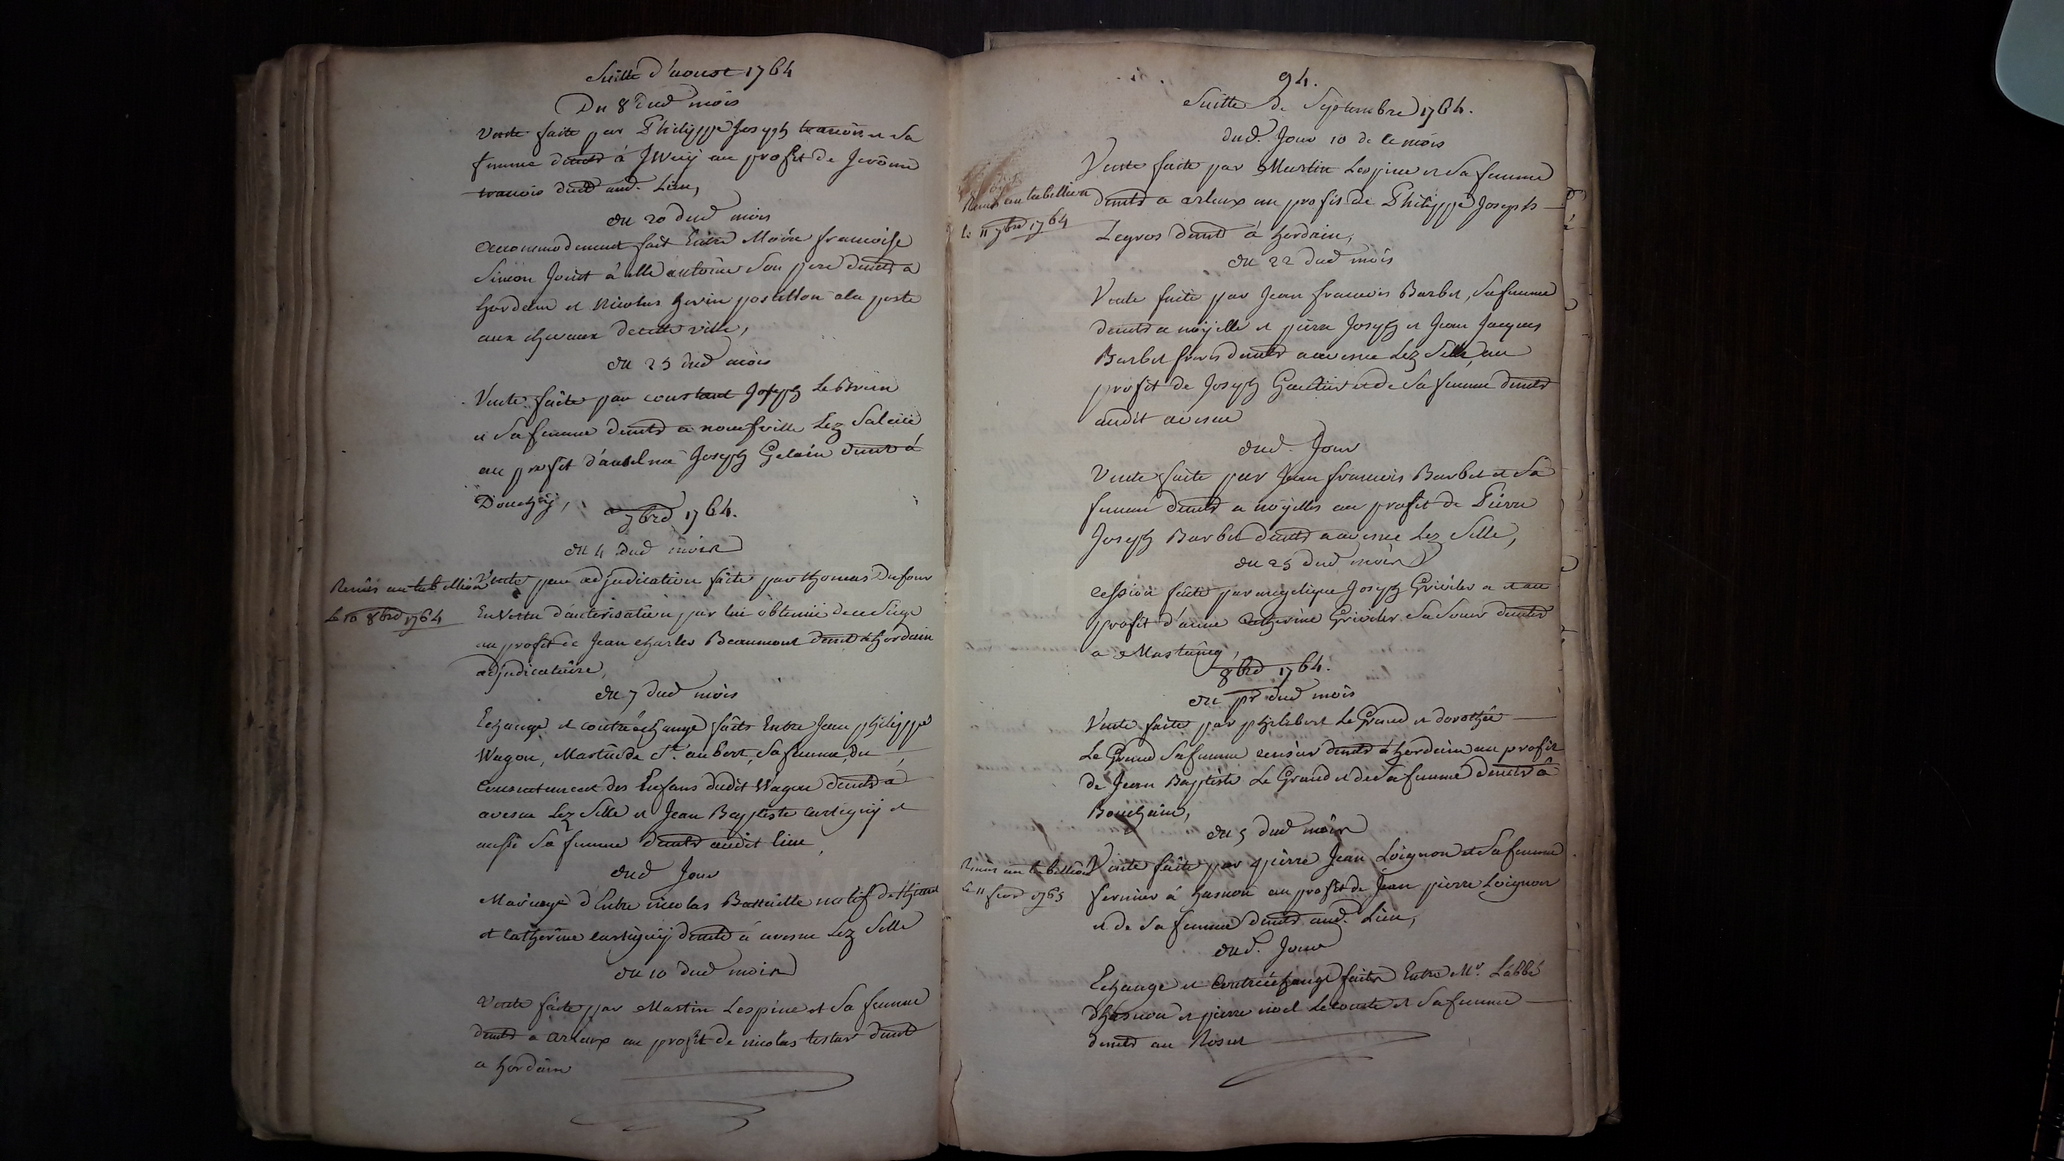 Suitte d'aoust 1764
Du 8 dud mois
Vente faite par Philippe Joseph tranoir et sa
femme demts à Jwuÿ au profit de Jerôme
tranois demt aud. Lieu,
Du 20 dud mois
accommodement fait Entre Marie francoise
Simon Joint à elle antoine son pere demts a
hordain et Nicolas herin postillon ala poste
aux chevaux decette ville,
Du 25 dud mois
Vente faite par constant Joseph Lebrun
et sa femme demts a neufville Lez
au profit d'anselme Joseph Gelain demt à
Douchÿ,
7bre 1764.
Du 4 dud mois
Remis au tabellion
Le 10 8bre 1764
Vente par adjudication faite par thomas Dufour
En Vertu d'autorisation par lui obtenüe de ce Siege
au profit de Jean charles Beaumont demt à hordain
adjudicataire,
Du 7 dud mois
Echange et contrêchange faits Entre Jean philippe
Wagon, Martin de St. aubert, sa femme, du
Consentement des Enfans dudit Wagon demts a
avesne Lez Selle et Jean Baptiste cartignÿ et
aussi sa femme demts audit lieu,
Dud Jour
Mariage d'Entre nicolas Bataille natif de
et catherine cartignÿ demte à avesne Lez Selle
Du 10 dud mois
Vente faite par Martin Lespine et sa femme
demts a arleux au profit de nicolas testar demt
a hordain
94.
Suitte de Septembre 1764.
dud. Jour 10 de ce mois
Remis au tabellion
le 11 7bre 1764
Vente faite par Martin Lespine et sa femme
demts a arleux au profit de Philippe Joseph
Legros demt à hordain,
Du 22 dud mois
Vente faite par Jean francois Barbet, sa femme
demts a noÿelle et pierre Joseph et Jean Jacques
Barbet freres demts a avesne Lez Selle, au
profit de Joseph Gautier et de sa femme demts
audit avesne
Dud. Jour
Vente faite par Jean francois Barbet et sa
femme demts a noÿelles au profit de Pierre
Joseph Barbet demt a avesne Lez Selle,
Du 25 dud mois
cession faite par angelique Joseph Griviler au
profit d'anne catherine Griviler sa soeur demts
a Mastaing,
8bre 1764.
Du pr dud mois
Vente faite par philebert Le Grand et dorothée
Le Grand sa femme demts à hordain au profit
de Jean Baptiste Le Grand et de sa femme demts à
Bouchain,
Du 5 dud mois
Remis au tabellion
le 11 fevr 1765
Vente faite par pierre Jean Loignon et sa femme
fermier à hasnon au profit de Jean pierre Loignon
et de sa femme demts aud. Lieu,
Dud. Jour
Echange et Contreéchange faits Entre Mr. L'abbé
d'hasnon et pierre noel Lecomte et sa femme
demts au Rosut